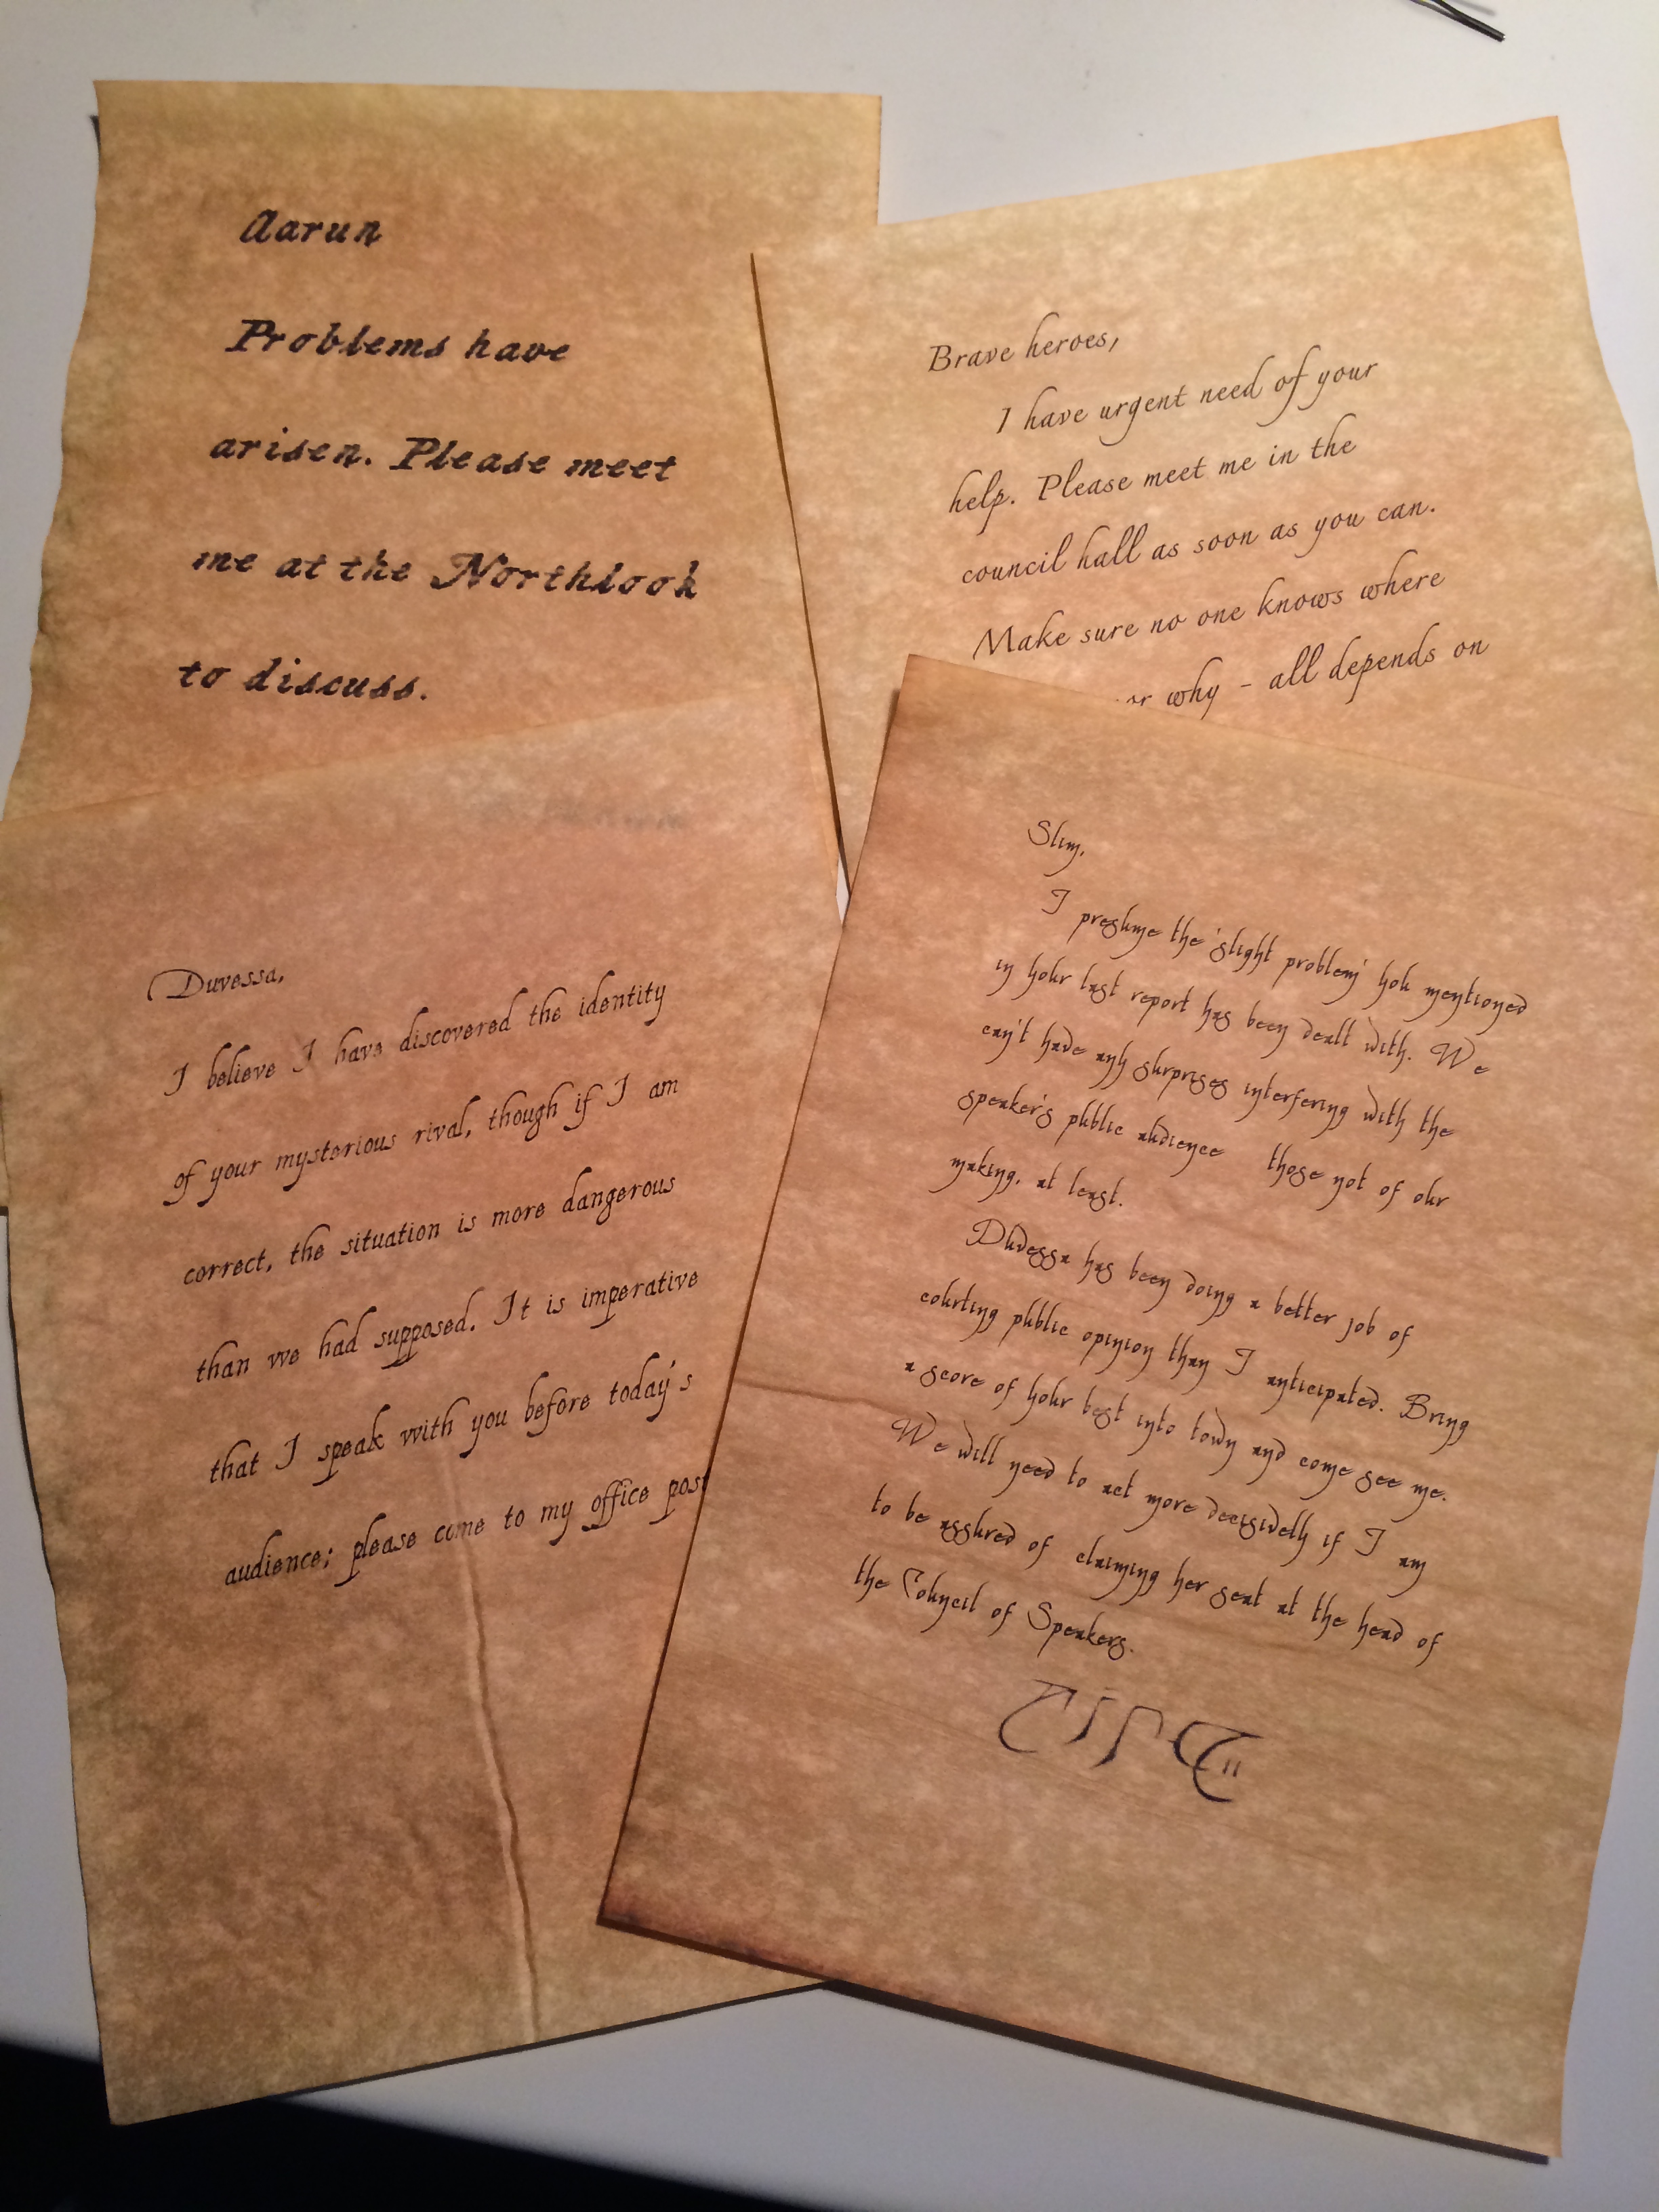 Aarun
Problems have
arisen. Please meet
me at the Northlook
to discuss.
Brave heroes,
I have urgent need of your
help. Please meet me in the
council hall as soon as you can.
Make sure no one knows where
or why - all depends on
Duvessa,
I believe I have discovered the identity
of your mysterious rival, though if I am
correct, the situation is more dangerous
than we had supposed. It is imperative
that I speak with you before today's
audience; please come to my office post
Slim,
I presume the 'slight problem' you mentioned
in your last report has been dealt with. We
can't have any surprises interfering with the
speaker's public audience those not of our
making, at least.
Duvessa has been doing a better job of
courting public opinion than I anticipated. Bring
a score of your best into town and come see me.
We will need to act more decisively if I am
to be assured of claiming her seat at the head of
the Council of Speakers.